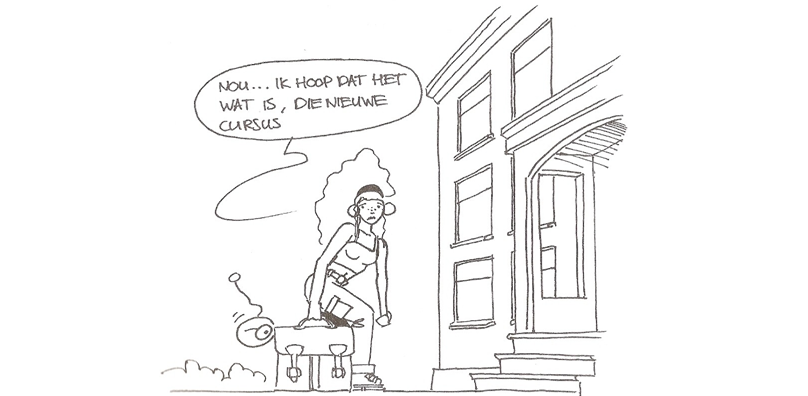 NOU... IK HOOP DAT HET
WAT IS, DIE NIEUWE
CURSUS